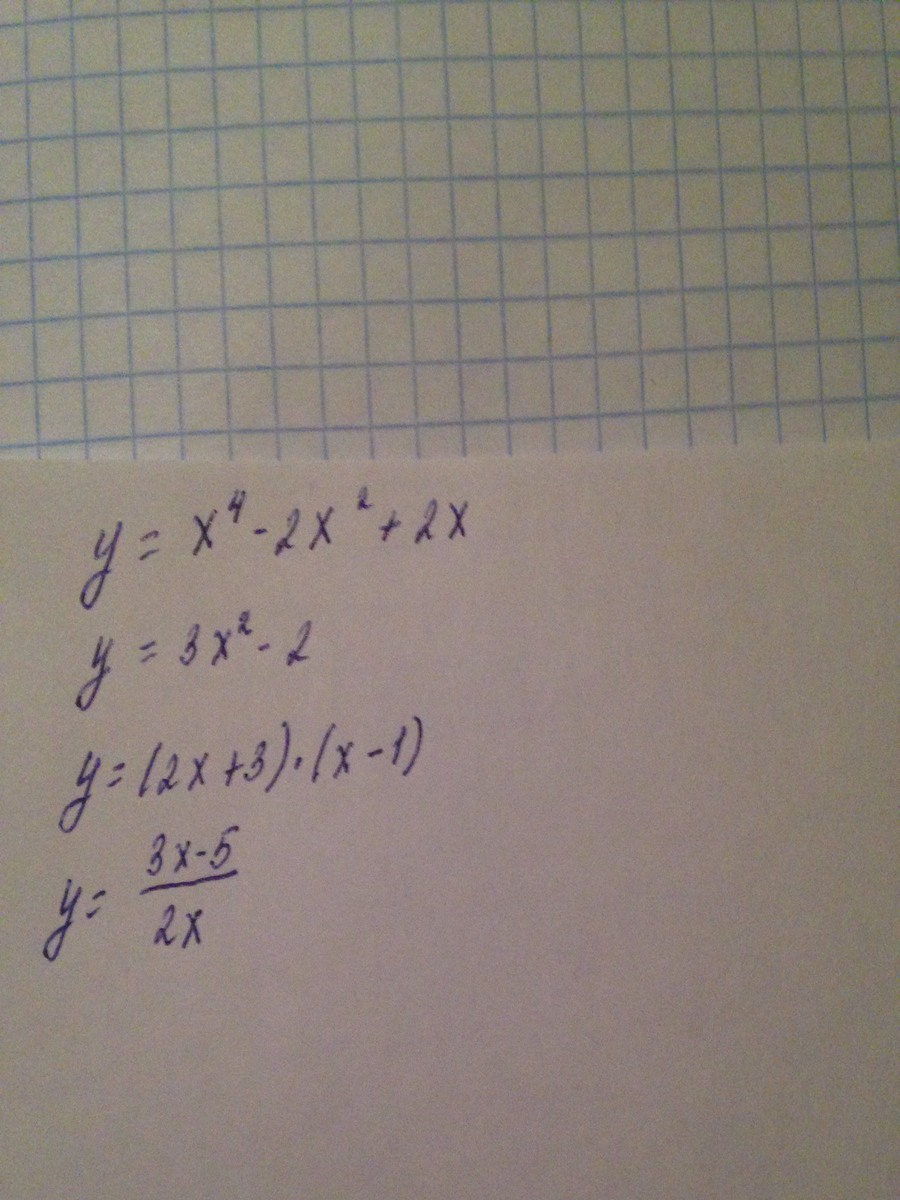 y = x⁴ - 2x² + 2x
y = 3x² - 2
y = (2x + 3) · (x - 1)
y = (3x - 5) / 2x